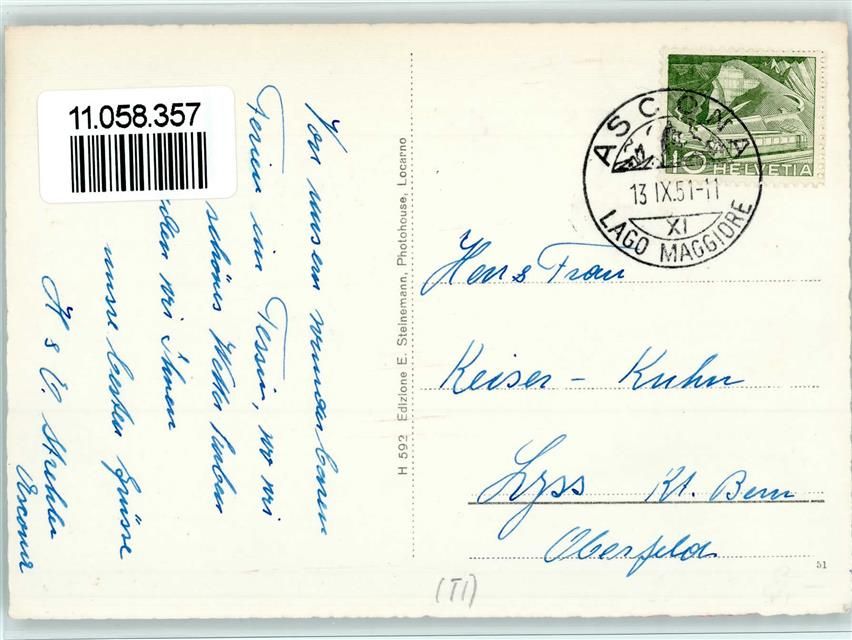 11.058.357
Von unsern wunderbaren
Ferien im Tessin, wo wir
schönes Wetter haben
wir Ihnen
unsre besten Grüsse
H & E. Strehler
Ascona
H 592 Edizione E. Steinemann, Photohouse, Locarno
ASCONA
13 IX.51-11
XI
LAGO MAGGIORE
10 HELVETIA
Herr & Frau
Keiser - Kuhn
Lyss Kt. Bern
Oberfeld
51
(TI)